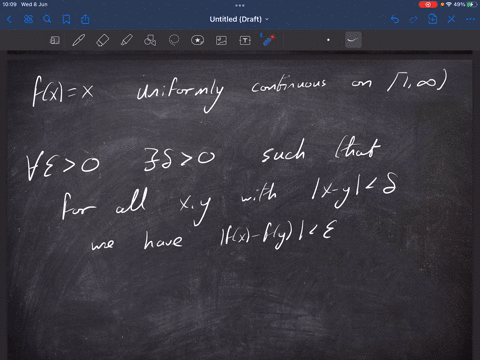 10:09 Wed 8 Jun
49%
Untitled (Draft)
f(x)=x uniformly continuous on [1,∞)
∀ε>0 ∃δ>0 such that
for all x,y with |x-y|<δ
we have |f(x)-f(y)|<ε